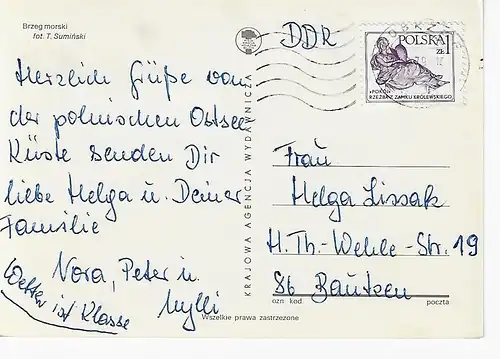 Brzeg morski
fot. T. Sumiński
Herzlich Grüße von
der polnischen Ostsee
Küste senden Dir
liebe Helga u. Deiner
Familie
Nora, Peter u.
Wetter ist Klasse
KRAJOWA AGENCJA WYDAWNICZA
DDR
POLSKA
1 ZŁ
«POKÓJ»
RZEŹBA Z ZAMKU KRÓLEWSKIEGO
Frau
Helga Lissak
H.Th.-Wehle-Str. 19
86 Bautzen
ozn kod
poczta
Wszelkie prawa zastrzeżone